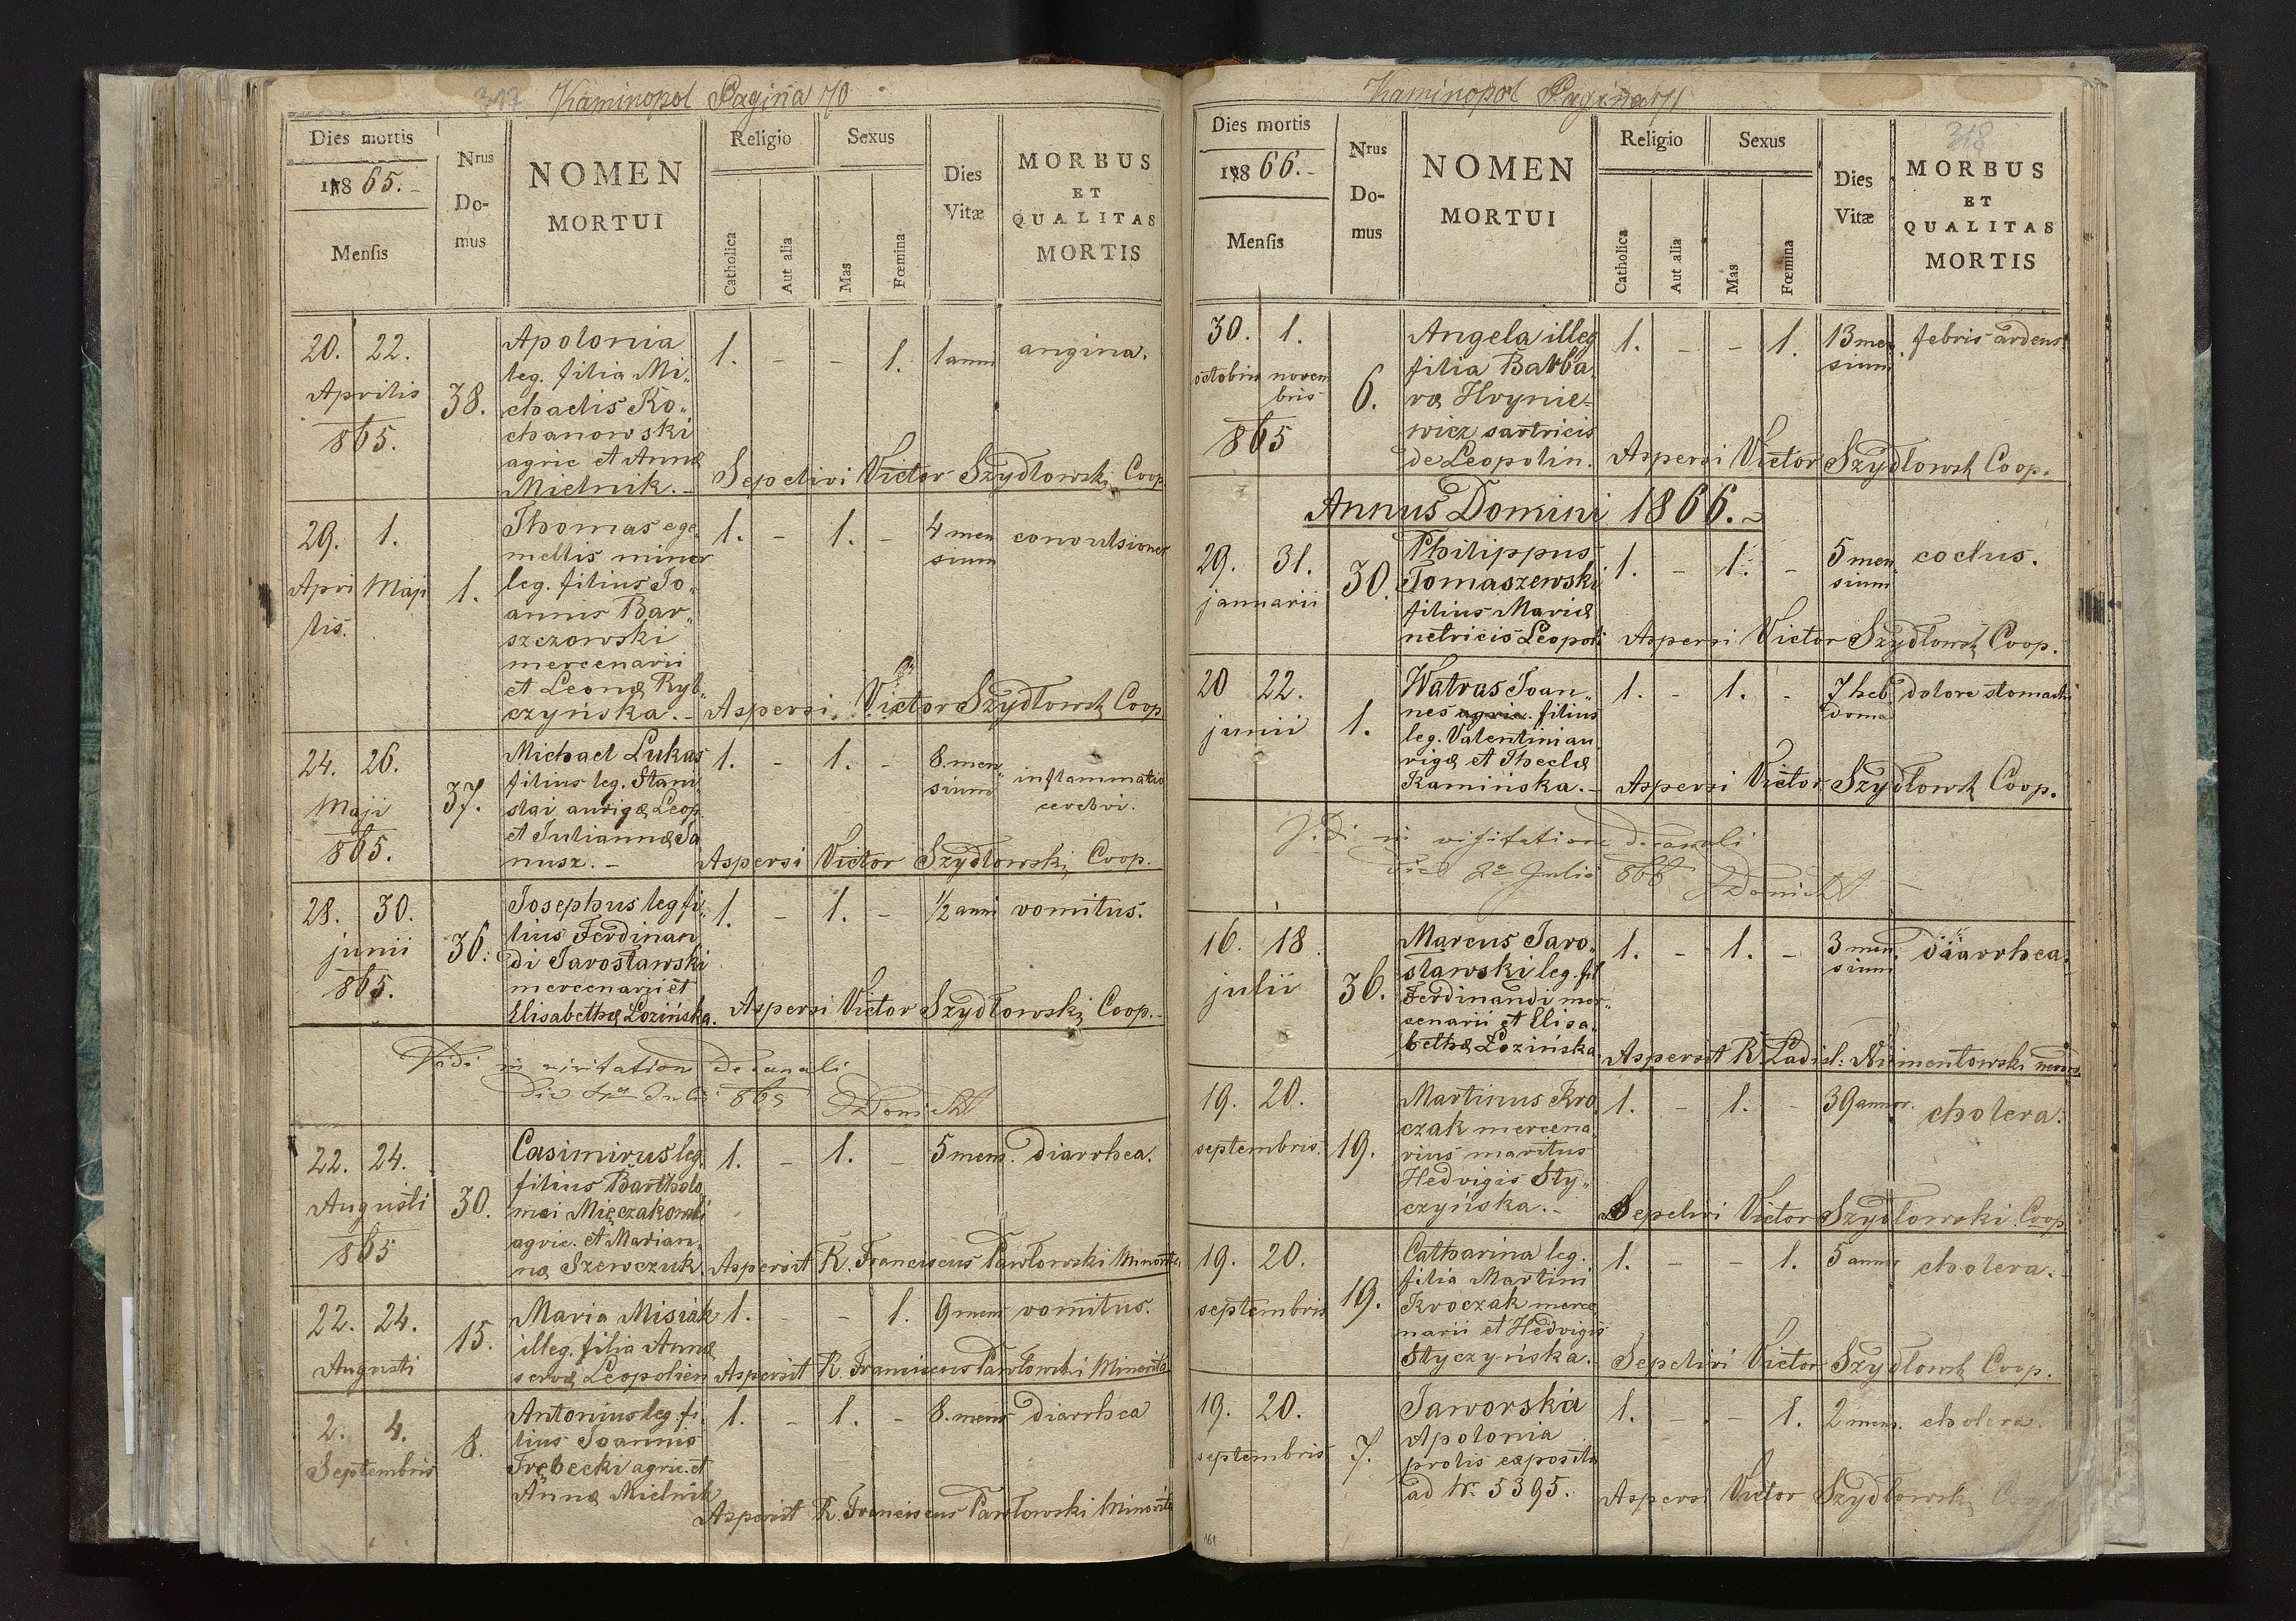 317 Kaminopol Pagina 170
Dies mortis
1865.
Mensis
Nrus
Do-
mus
NOMEN
MORTUI
Religio
Catholica
Aut alia
Sexus
Mas
Fœmina
Dies
Vitæ
MORBUS
ET
QUALITAS
MORTIS
20. 22.
Aprilis
865.
38.
Apolonia
leg. filia Mi„
chaelis Ko„
chanowski
agric et Annæ
Mielnik.
1. - - 1. 1 anni angina.
Sepelivi Victor Szydlowski Coop
29. 1.
Apri Maji
lis.
1.
Thomas e ge„
mellis minor
leg. filius Jo„
annis Bar„
szczowski
mercenarii
et Leonæ Ryb„
czyńska.
1. - 1. - 4 men
sium
convulsiones
Aspersi Victor Szydłowsk Coop
24. 26.
Maji
865.
37.
Michael Lukas
filius leg. Stani„
slai aurigæ Leop.
et Juliannæ Ja
nusz.
1. - 1. - 8. men„
sium
inflammatio
cerebri.
Aspersi Victor Szydlowski Coop.
28. 30.
junii
865.
36.
Josephus leg fi„
lius Ferdinan„
di Jarosławski
mercenarii et
Elisabethæ Lozińska.
1. - 1. - ½ anni vomitus.
Aspersi Victor Szydłowski Coop.
Vidi in visitatione decanali
die 4ta Julii 865
22. 24.
Augusti
865
30.
Casimirus leg.
filius Bartholo
mæi Mięczakowski
agric. et Marian„
næ Szewczuk.
1. - 1. - 5 mens. diarrhea.
Aspersit R. Franciscus Pawłowski Minorita
22. 24.
Augusti
15.
Maria Misiak
illeg. filia Annæ
servæ Leopolien
1. - - 1. 9 mens vomitus.
Aspersit R. Franciscus Pawłowski Minorita
2. 4.
Septembris
8.
Antonius leg. fi„
lius Joannis
Trębecki agric. et
Annæ Mielnik
1. - 1. - 8. mens diarrhea
Aspersit R. Franciscus Pawłowski Minorita
Kaminopol Pagina 171
318
Dies mortis
1866.
Mensis
Nrus
Do-
mus
NOMEN
MORTUI
Religio
Catholica
Aut alia
Sexus
Mas
Fœmina
Dies
Vitæ
MORBUS
ET
QUALITAS
MORTIS
30. 1.
octobris novem
bris
865
6.
Angela illeg
filia Barba„
ræ Hrynie-
wicz sartricis
de Leopolin.
1. - - 1. 13 men
sium
febris ardens
Aspersi Victor Szydlowsk Coop.
Annus Domini 1866.
29. 31.
januarii
30.
Philippus
Tomaszewski
filius Mariæ
netricis Leopoli
1. - 1. - 5 men„
sium
coctus.
Aspersi Victor Szydłowsk Coop.
20 22.
junii
1.
Watras Joan„
nes agric. filius
leg. Valentini au„
rigæ et Theclæ
Kamińska.
1. - 1. - 7 heb
doma
dolore stomachi
Aspersi Victor Szydłowsk Coop.
Vidi in visitatione decanali
die 2a Julii 866
16. 18.
julii
36.
Marcus Jaro„
sławski leg. fil
Ferdinandi mer„
cenarii et Elisa„
bethæ Łozińska
1. - 1. - 3 men
sium
diarrhea.
Aspersit R. Ladisl: Niementowski
19. 20.
septembris
19.
Martinus Kro
czak mercena„
rius maritus
Hedvigis Sty„
czyńska.
1. - 1. - 39 annor. cholera.
Sepelivi Victor Szydlowski Coop
19. 20.
septembris
19.
Catharina leg.
filia Martini
Kroczak merce
narii et Hedvigis
Styczyńska.
1. - - 1. 5 annor cholera.
Sepelivi Victor Szydłowsk Coop.
19. 20.
septembris
7.
Jaworska
Apolonia
prolis exposita
ad Nr. 5395.
1. - - 1. 2 mens. cholera.
Aspersi Victor Szydłowski Coop
161